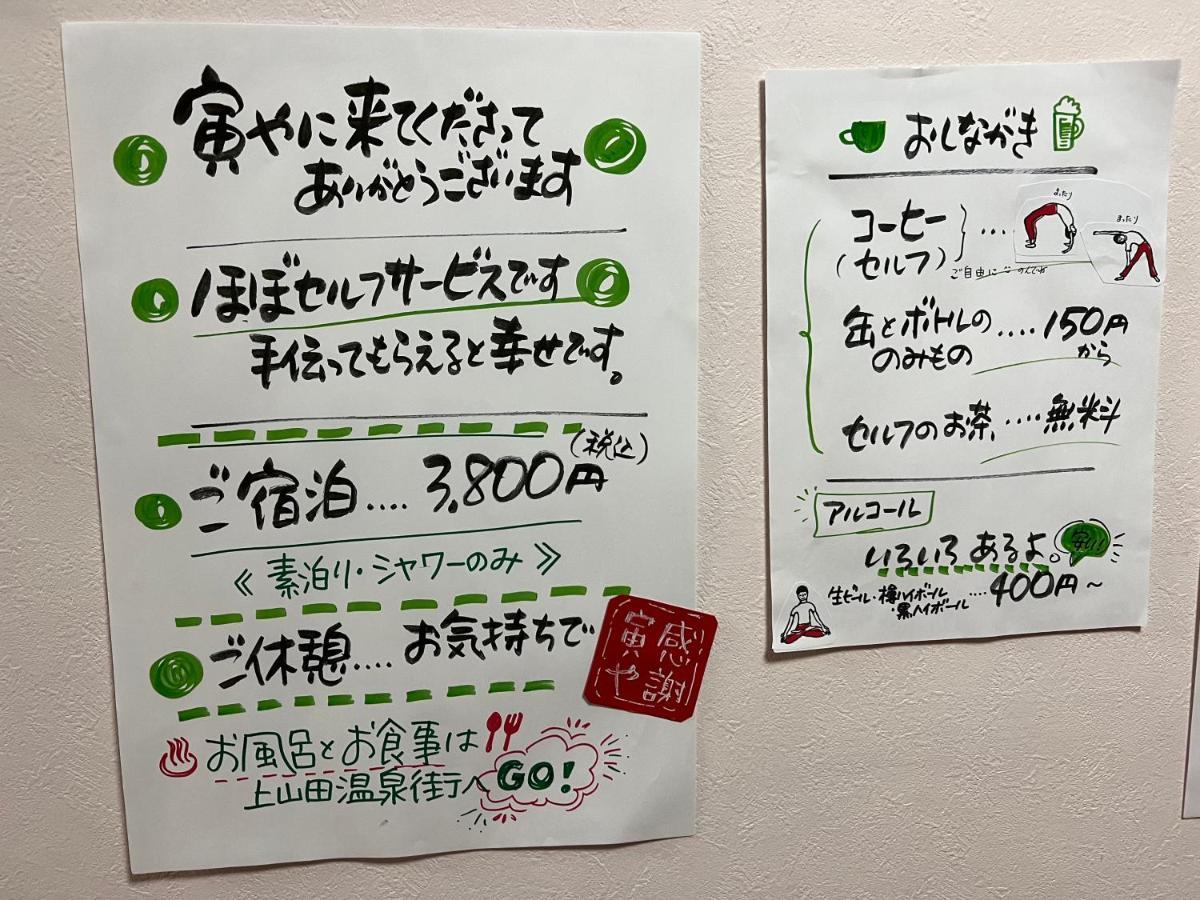 寅やに来てくださって
ありがとうございます
ほぼセルフサービスです
手伝ってもらえると幸せです。
ご宿泊‥‥3,800円(税込)
《素泊り・シャワーのみ》
ご休憩‥‥お気持ちで
感謝
寅や
お風呂とお食事は
上山田温泉街へGO!
おしながき
コーヒー
(セルフ)
‥‥
まったり
ご自由に
缶とボトルの
のみもの
‥‥150円
から
セルフのお茶‥‥無料
アルコール
いろいろあるよ。
安い!
生ビール・樽ハイボール
・黒ハイボール
‥‥400円～